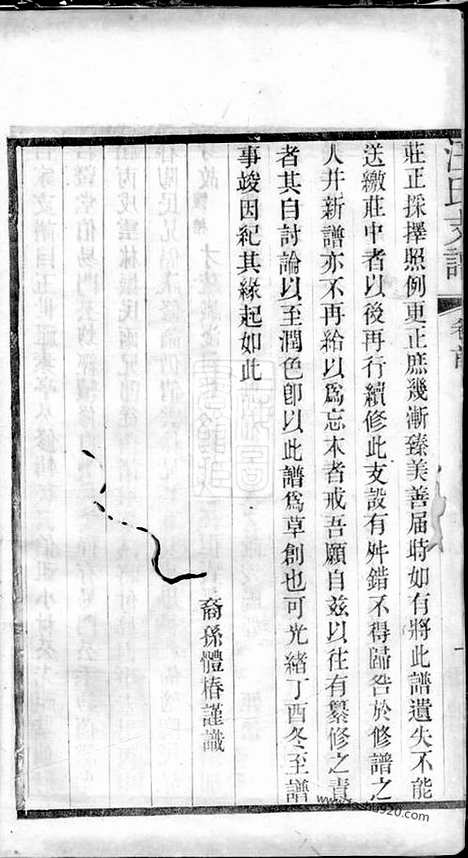 汪氏支譜 卷首
莊正採擇照例更正庶幾漸臻美善屆時如有將此譜遺失不能
送繳莊中者以後再行續修此支設有舛錯不得歸咎於修譜之
人幷新譜亦不再給以爲忘本者戒吾願自茲以往有纂修之責
者其自討論以至潤色卽以此譜爲草創也可光緒丁酉冬至譜
事竣因紀其緣起如此
裔孫體椿謹識